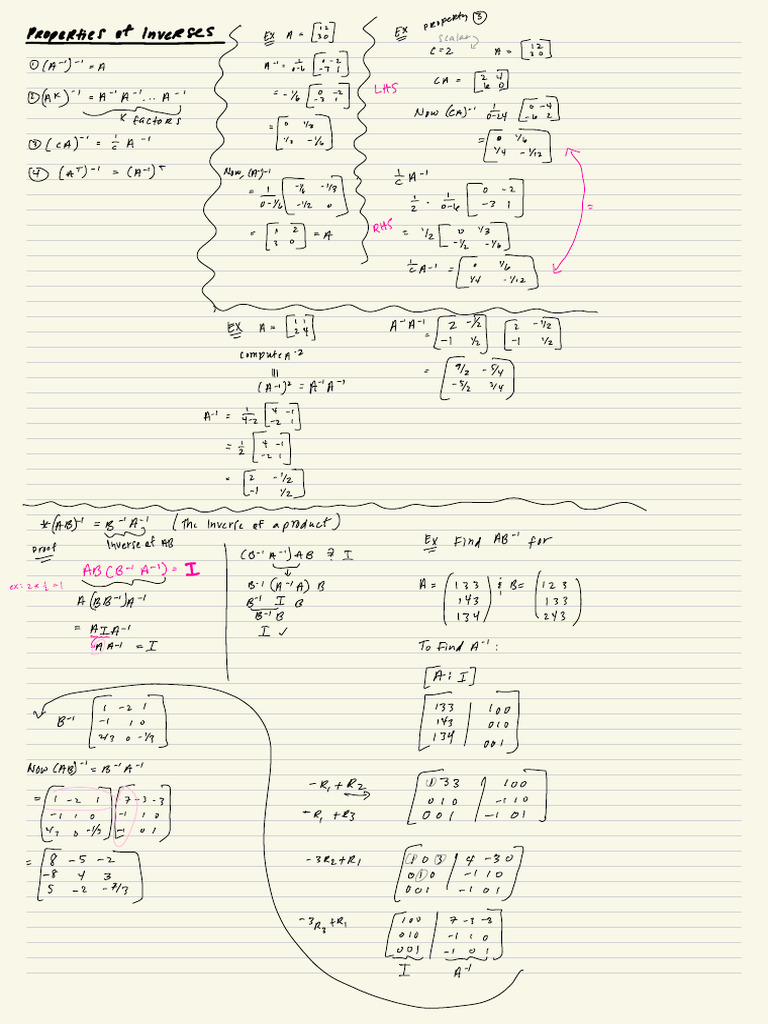 Properties of Inverses
① (A⁻¹)⁻¹ = A
② (Aᴷ)⁻¹ = A⁻¹ A⁻¹ ... A⁻¹
K factors
③ (cA)⁻¹ = 1/c A⁻¹
④ (Aᵀ)⁻¹ = (A⁻¹)ᵀ
Ex A = [1 2
3 0]
A⁻¹ = 1/0-6 [0 -2
-3 1]
= -1/6 [0 -2
-3 1]
= [0 1/3
1/2 -1/6]
Now, (A⁻¹)⁻¹
= 1/0-1/6 [-1/6 -1/3
-1/2 0]
= [1 2
3 0] = A
Ex property ③
scalar
C = 2 A = [1 2
3 0]
LHS
CA = [2 4
6 0]
Now (CA)⁻¹ 1/0-24 [0 -4
-6 2]
= [0 1/6
1/4 -1/12]
=
1/c A⁻¹
1/2 · 1/0-6 [0 -2
-3 1]
RHS
= 1/2 [0 1/3
-1/2 -1/6]
1/c A⁻¹ = [0 1/6
1/4 -1/12]
Ex A = [1 1
2 4]
compute A⁻²
(A⁻¹)² = A⁻¹ A⁻¹
A⁻¹ = 1/4-2 [4 -1
-2 1]
= 1/2 [4 -1
-2 1]
= [2 -1/2
-1 1/2]
A⁻¹A⁻¹
= [2 -1/2
-1 1/2] [2 -1/2
-1 1/2]
= [9/2 -5/4
-5/2 3/4]
*(AB)⁻¹ = B⁻¹ A⁻¹ (The Inverse of a product)
Inverse of AB
Proof
AB(B⁻¹ A⁻¹) = I
ex: 2 × 1/2 = 1
A(BB⁻¹)A⁻¹
= A I A⁻¹
A A⁻¹ = I
(B⁻¹ A⁻¹) AB ? I
B⁻¹ (A⁻¹ A) B
B⁻¹ I B
B⁻¹ B
I ✓
Ex Find AB⁻¹ for
A = (1 3 3
1 4 3
1 3 4) & B = (1 2 3
1 3 3
2 4 3)
To find A⁻¹:
[A : I]
[1 3 3 | 1 0 0
1 4 3 | 0 1 0
1 3 4 | 0 0 1]
-R₁ + R₂
-R₁ + R₃
[1 3 3 | 1 0 0
0 1 0 | -1 1 0
0 0 1 | -1 0 1]
-3R₂ + R₁
[1 0 3 | 4 -3 0
0 1 0 | -1 1 0
0 0 1 | -1 0 1]
-3R₃ + R₁
[1 0 0 | 7 -3 -3
0 1 0 | -1 1 0
0 0 1 | -1 0 1]
I A⁻¹
B⁻¹ [1 -2 1
-1 1 0
2/3 0 -1/3]
Now (AB)⁻¹ = B⁻¹ A⁻¹
= [1 -2 1
-1 1 0
2/3 0 -1/3] [7 -3 -3
-1 1 0
-1 0 1]
= [8 -5 -2
-8 4 3
5 -2 -7/3]